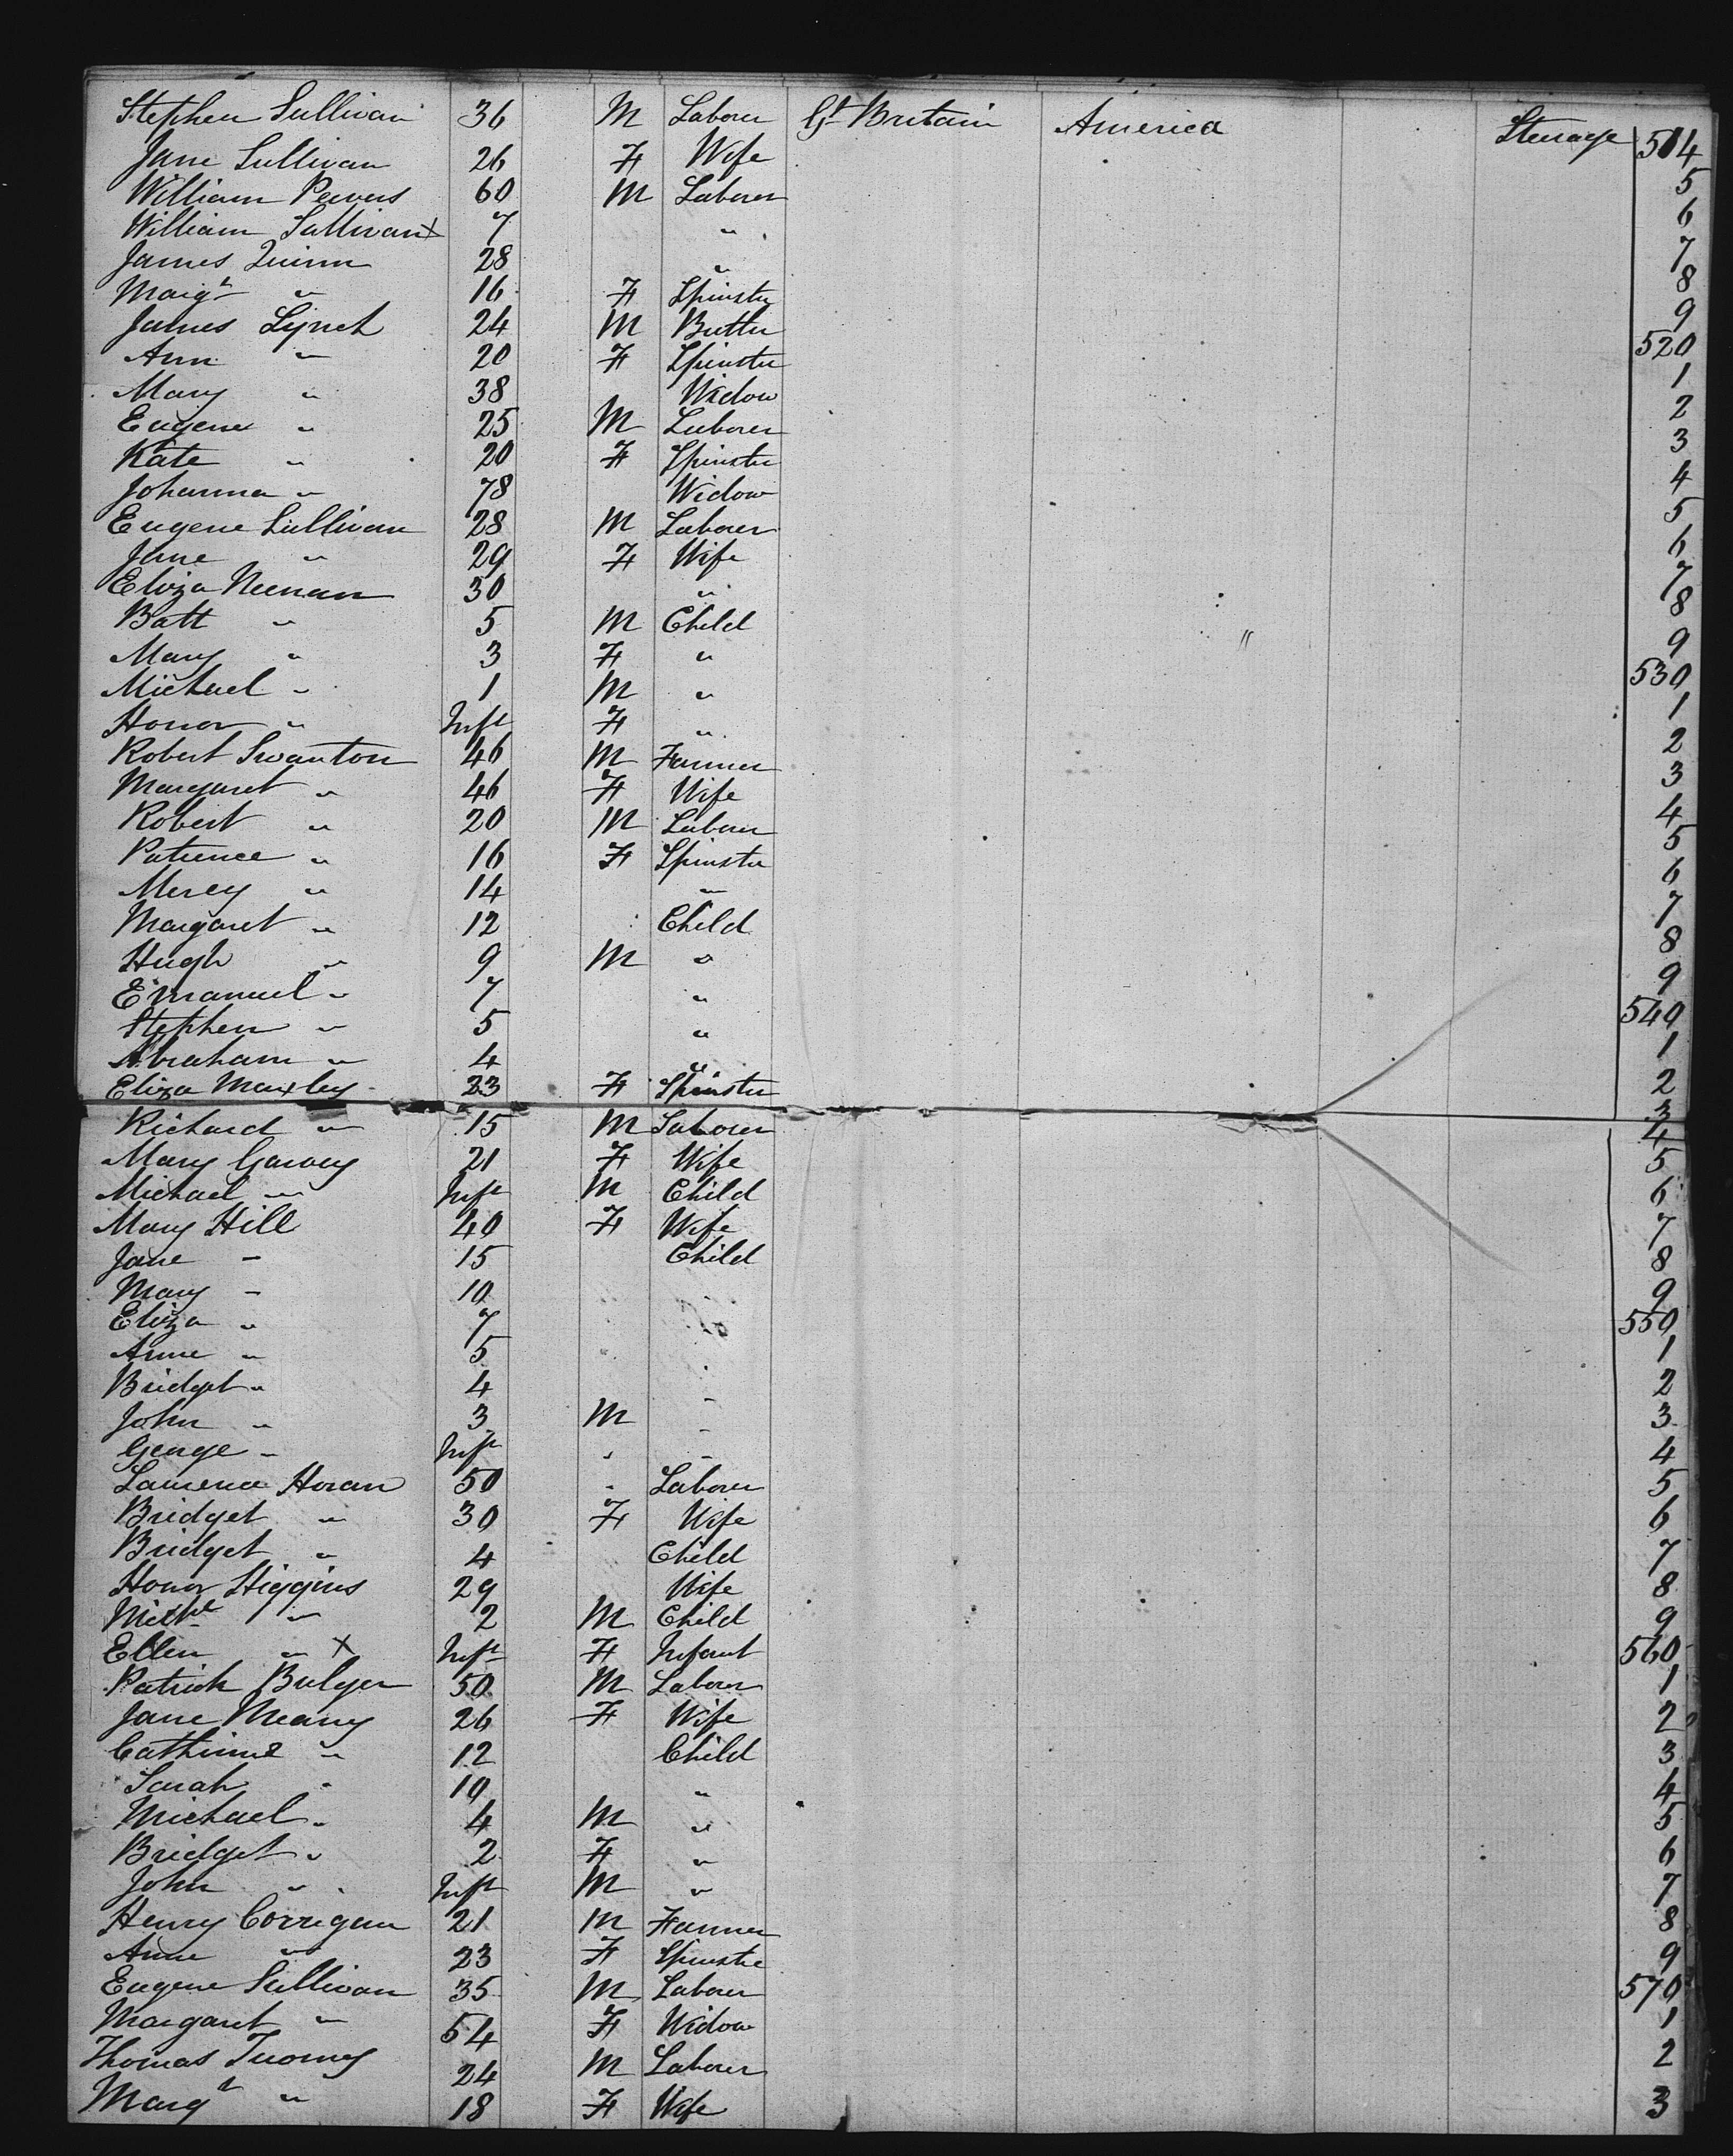 Stephen Sullivan 36 M Laborer Gt Britain America Steerage 514
Jane Sullivan 26 F Wife 5
William Peivers 60 M Laborer 6
William Sullivan x 7 " 7
James Quinn 28 " 8
Margt " 16 F Spinster 9
James Lynch 24 M Butler 520
Ann " 20 F Spinster 1
Mary " 38 Widow 2
Eugene " 25 M Laborer 3
Kate " 20 F Spinster 4
Johanna " 78 Widow 5
Eugene Sullivan 28 M Laborer 6
Jane " 29 F Wife 7
Eliza Neenan 30 " 8
Batt " 5 M Child 9
Mary " 3 F " 530
Michael " 1 M " 1
Honor " Inft F " 2
Robert Swanton 46 M Farmer 3
Margaret " 46 F Wife 4
Robert " 20 M Laborer 5
Patience " 16 F Spinster 6
Mercy " 14 " 7
Margaret " 12 Child 8
Hugh " 9 M " 9
Emanuel " 7 " 540
Stephen " 5 " 1
Abraham " 4 " 2
Eliza Maxley 23 F Spinster 3
Richard " 15 M Laborer 4
Mary Garvey 21 F Wife 5
Michael " Inft M Child 6
Mary Hill 40 F Wife 7
Jane " 15 Child 8
Mary " 10 9
Eliza " 7 550
Anne " 5 1
Bridget " 4 2
John " 3 M 3
George " Inft " " 4
Laurence Horan 50 " Laborer 5
Bridget " 30 F Wife 6
Bridget " 4 Child 7
Honor Higgins 29 Wife 8
Michl " 2 M Child 9
Ellen " x Inft F Infant 560
Patrick Bulger 50 M Laborer 1
Jane Meany 26 F Wife 2
Catherine " 12 Child 3
Sarah " 10 " 4
Michael " 4 M " 5
Bridget " 2 F " 6
John " Inft M " 7
Henry Corrigan 21 M Farmer 8
Anne " 23 F Spinster 9
Eugene Sullivan 35 M Laborer 570
Margaret " 54 F Widow 1
Thomas Tuomy 24 M Laborer 2
Margt " 18 F Wife 3